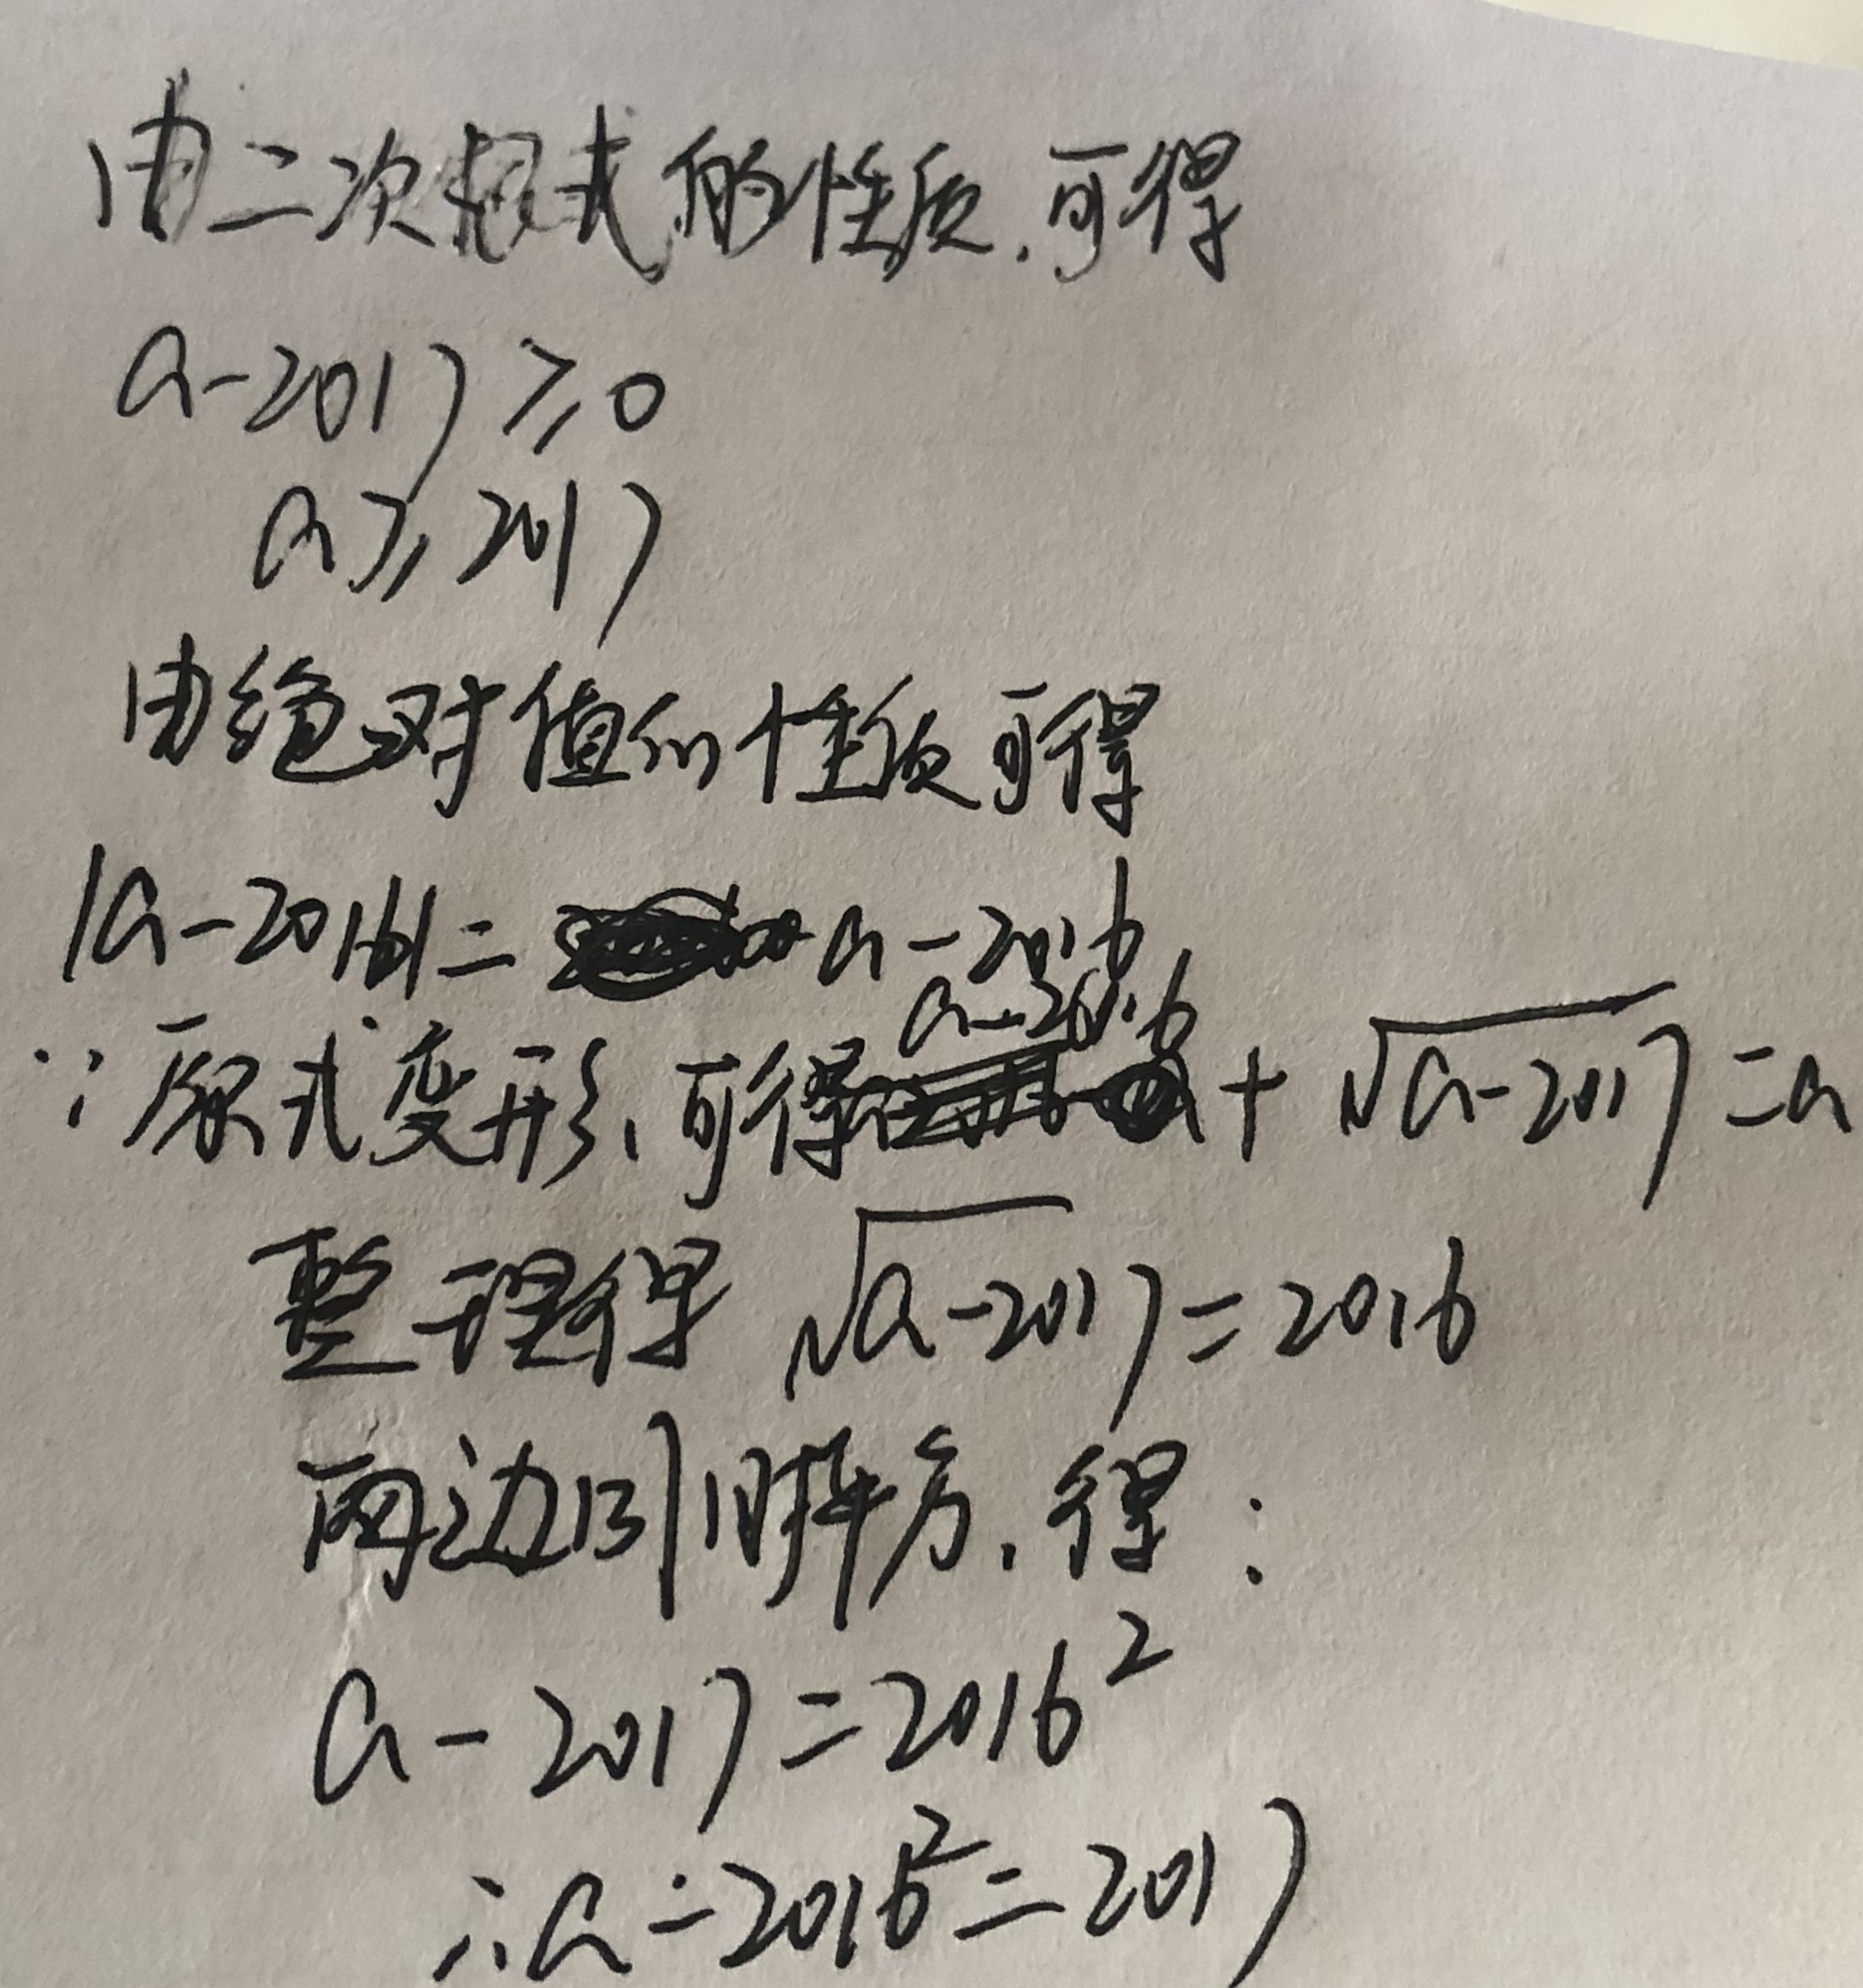 由二次根式的性质,可得
a-2017≥0
a≥2017
由绝对值的性质可得
|a-2016|= a-2016
∵原式变形,可得a-2016+√a-2017=a
整理得 √a-2017=2016
两边同时平方,得:
a-2017=2016²
∴a-2016²=2017